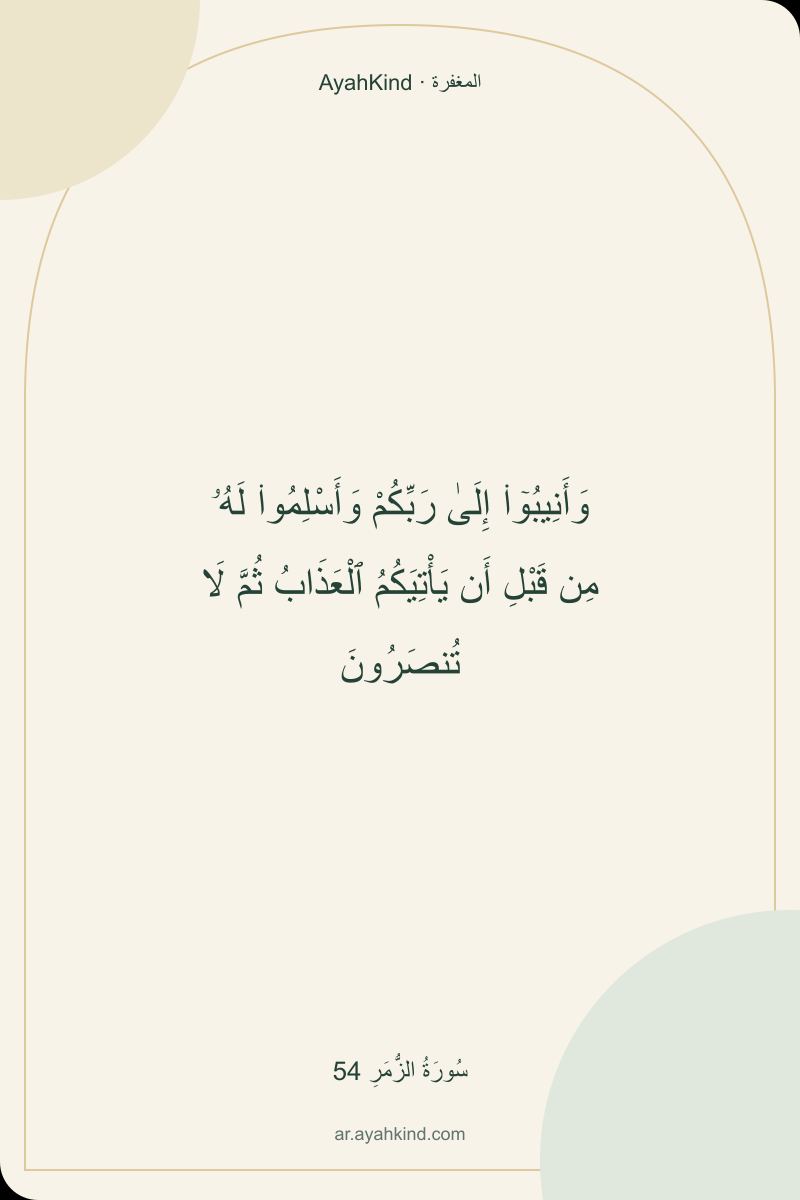 AyahKind · المغفرة
وَأَنِيبُوٓا۟ إِلَىٰ رَبِّكُمْ وَأَسْلِمُوا۟ لَهُۥ
مِن قَبْلِ أَن يَأْتِيَكُمُ ٱلْعَذَابُ ثُمَّ لَا
تُنصَرُونَ
سُورَةُ الزُّمَرِ 54
ar.ayahkind.com